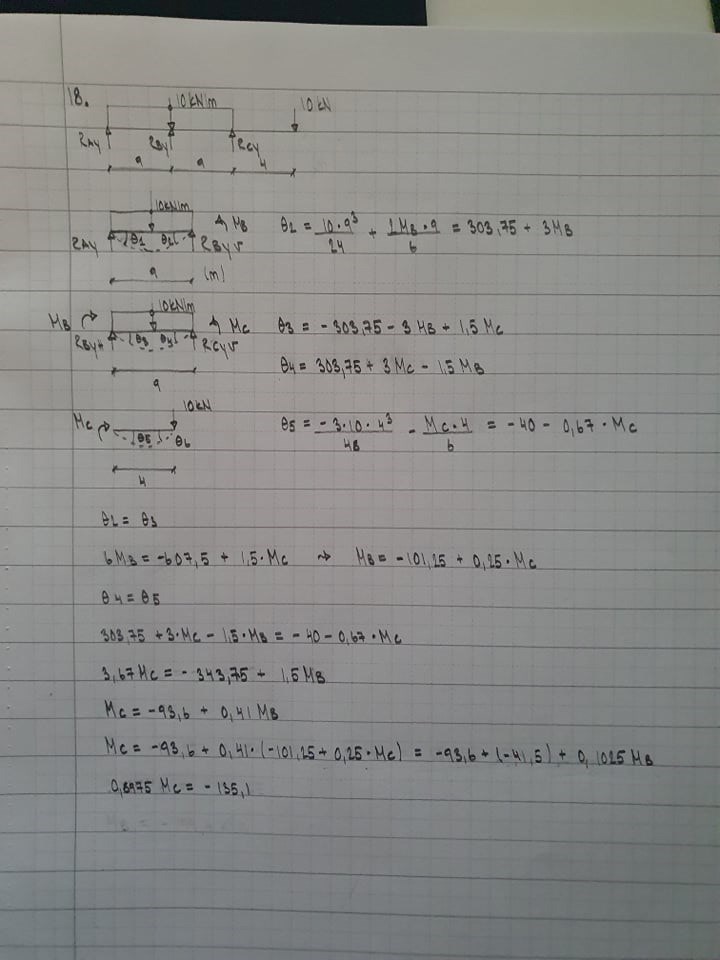 18.
10 kN/m 10 kN
RAy RBy RCy
9 9 4
10kN/m
MB
θ1 θ2
RAy RByv
θ2 = 10·9³/24 + 2MB·9/6 = 303,75 + 3MB
9 (m)
10kN/m
MB MC
θ3 θ4
RByH RCyv
θ3 = -303,75 - 3 MB + 1,5 MC
θ4 = 303,75 + 3 MC - 1,5 MB
9
10kN
MC
θ5 θ6
θ5 = -3·10·4³/48 - MC·4/6 = -40 - 0,67·MC
4
θ2 = θ3
6MB = -607,5 + 1,5·MC → MB = -101,25 + 0,25·MC
θ4 = θ5
303,75 + 3·MC - 1,5·MB = -40 - 0,67·MC
3,67MC = -343,75 + 1,5MB
MC = -93,6 + 0,41MB
MC = -93,6 + 0,41·(-101,25 + 0,25·MC) = -93,6 + (-41,5) + 0,1025 MB
0,8975 MC = -135,1